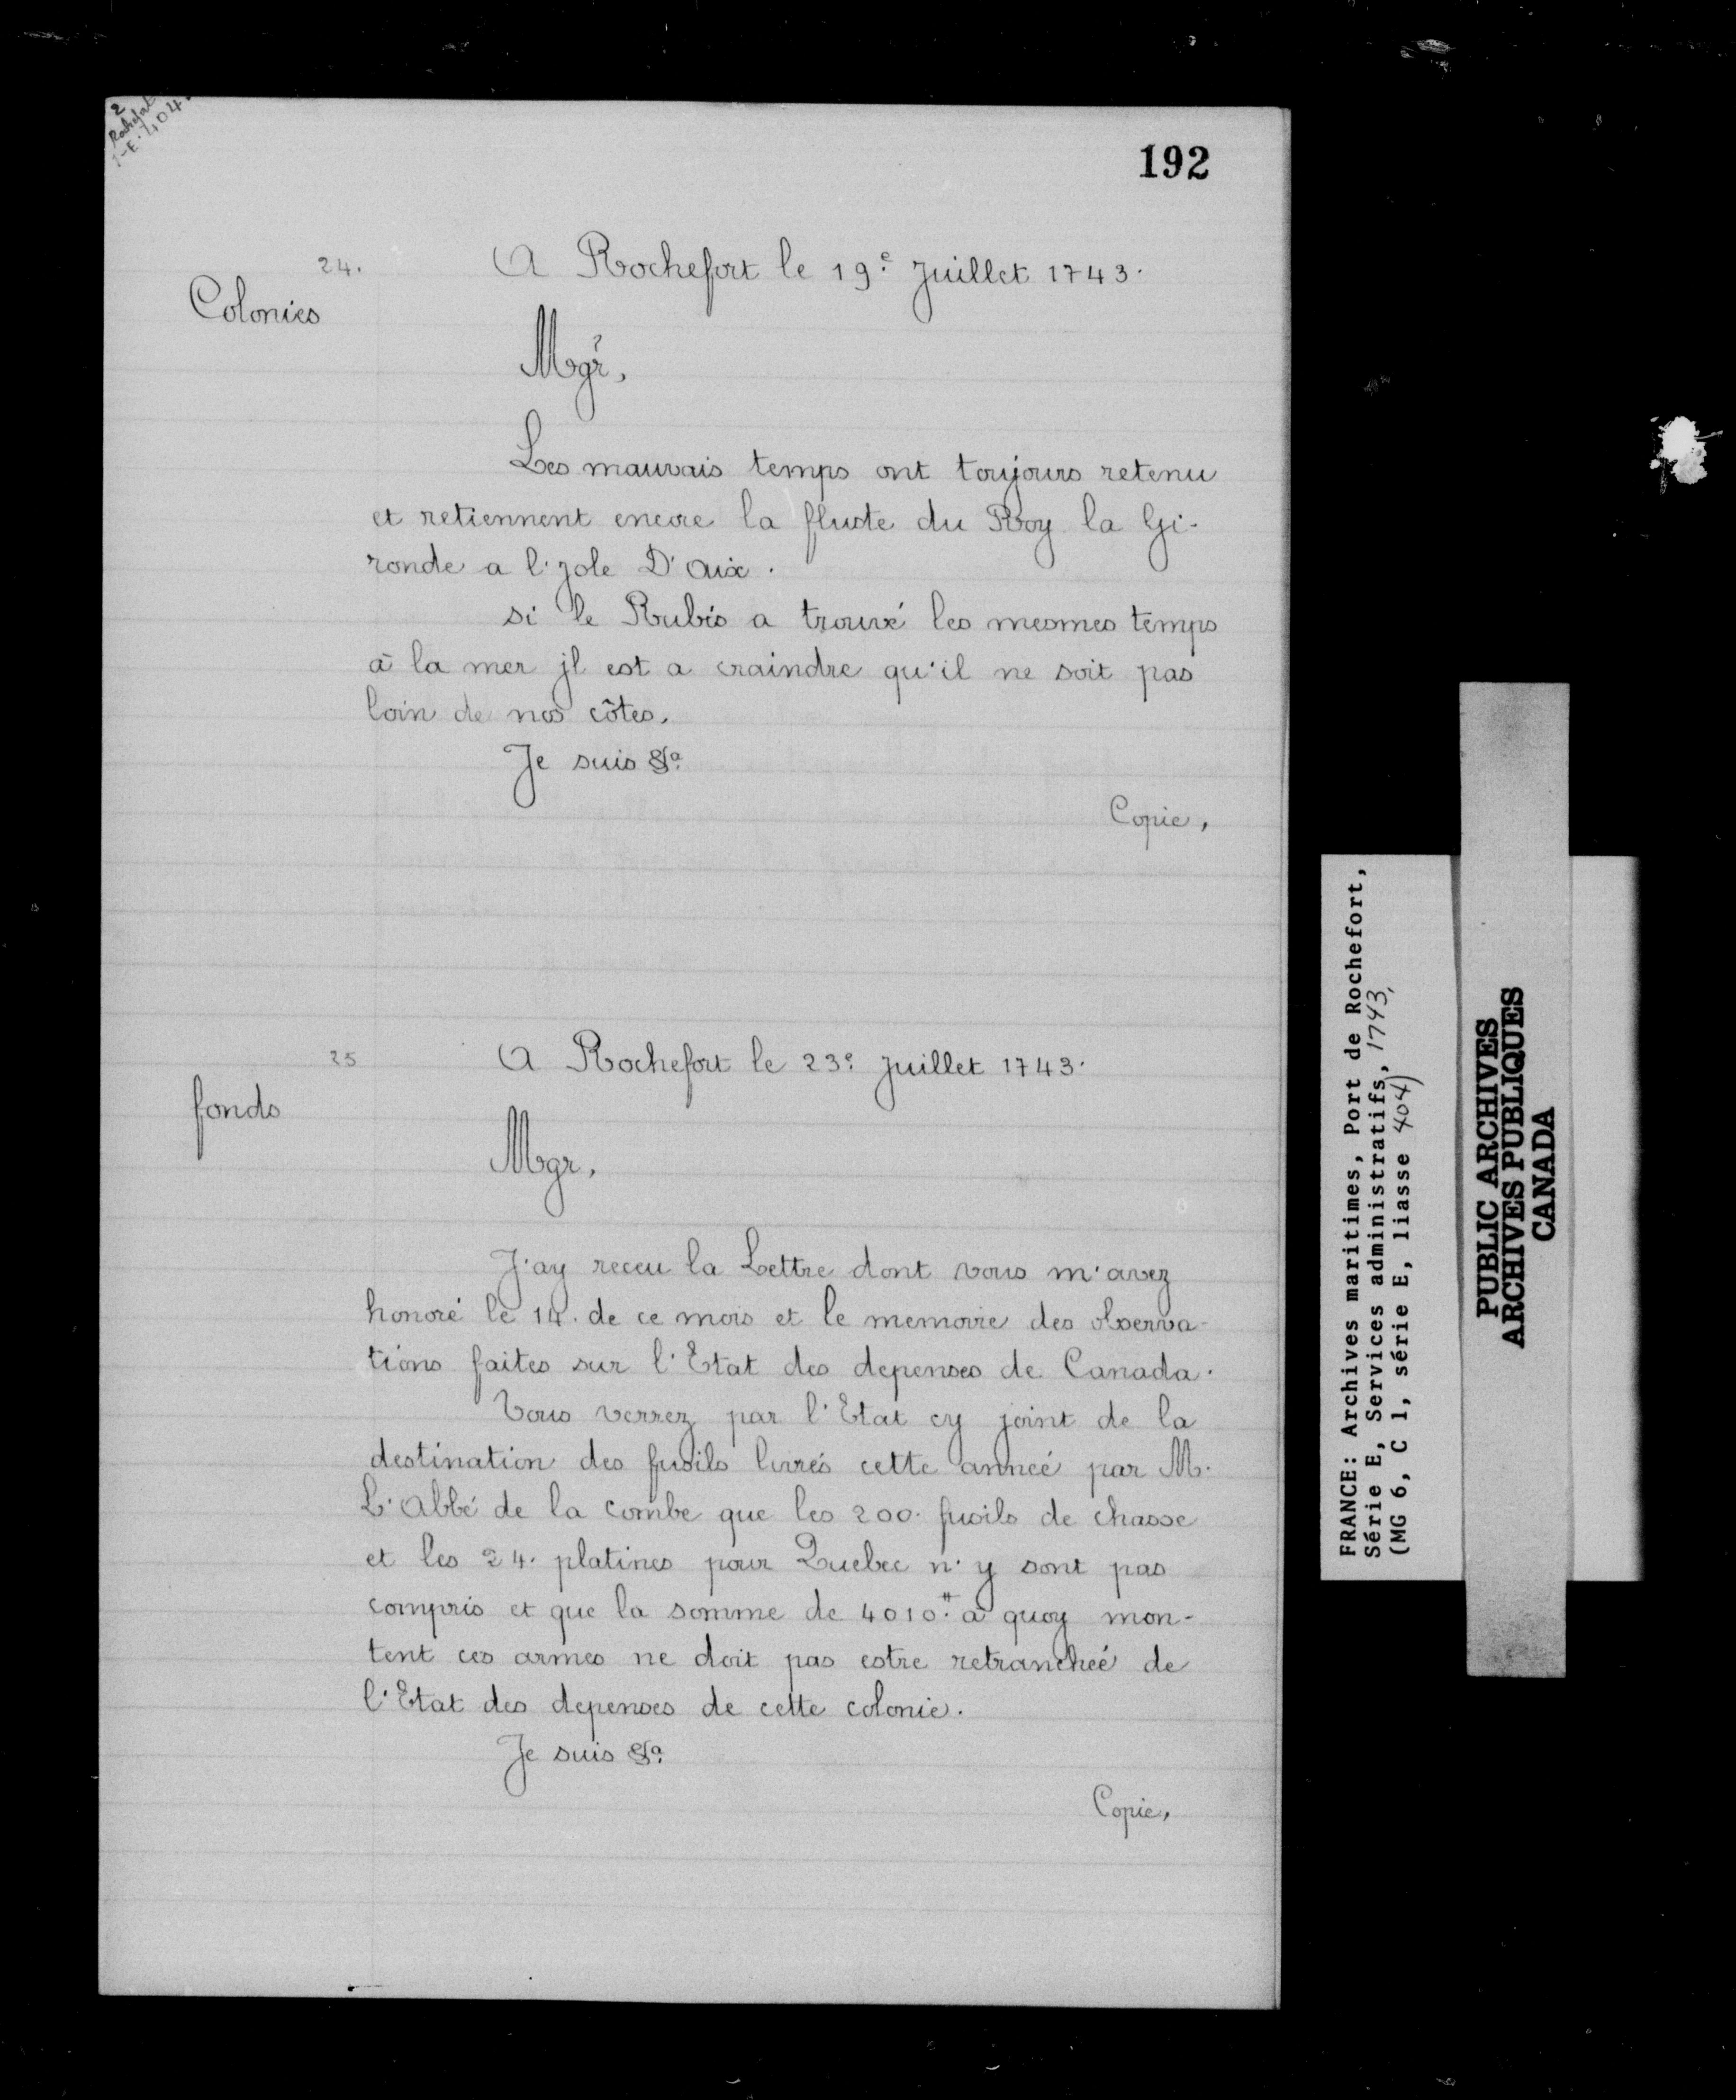 2
Rochefort
1-E. 404.
192
24.
A Rochefort le 19e. Juillet 1743.
Colonies
Mgr,
Les mauvais temps ont toujours retenu
et retiennent encore la fluste du Roy la Gi-
ronde a l'jsle D'aix.
si le Rubis a trouvé les mesmes temps
à la mer jl est a craindre qu'il ne soit pas
loin de nos côtes.
Je suis &a.
Copie,
25
A Rochefort le 23e. Juillet 1743.
fonds
Mgr,
J'ay receu la Lettre dont vous m'avez
honoré le 14. de ce mois et le memoire des observa-
tions faites sur l'Etat des depenses de Canada.
Vous verrez par l'Etat cy joint de la
destination des fusils livrés cette anneé par M.
L'Abbé de la combe que les 200. fusils de chasse
et les 24. platines pour Quebec n'y sont pas
compris et que la somme de 4010.# à quoy mon-
tent ces armes ne doit pas estre retrancheé de
l'Etat des depenses de cette colonie.
Je suis &a.
Copie,
FRANCE: Archives maritimes, Port de Rochefort,
Série E, Services administratifs, 1743,
(MG 6, C 1, série E, liasse 404)
PUBLIC ARCHIVES
ARCHIVES PUBLIQUES
CANADA